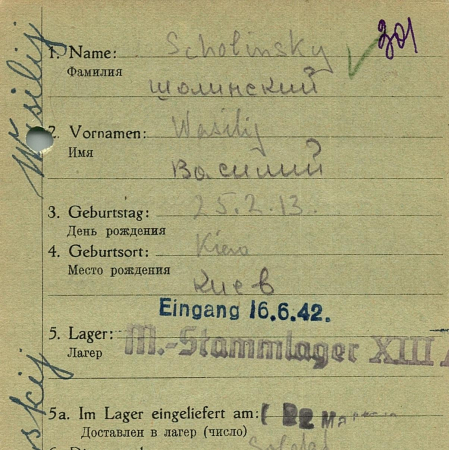 301
1. Name: Scholinsky
Фамилия
Шолинский
2. Vornamen: Wasilij
Имя
Василий
3. Geburtstag: 25.2.13.
День рождения
4. Geburtsort: Kiew
Место рождения
Киев
Eingang 16.6.42.
5. Lager: M.-Stammlager XIII A
Лагер
5a. Im Lager eingeliefert am:
Доставлен в лагер (число)
Wasilij